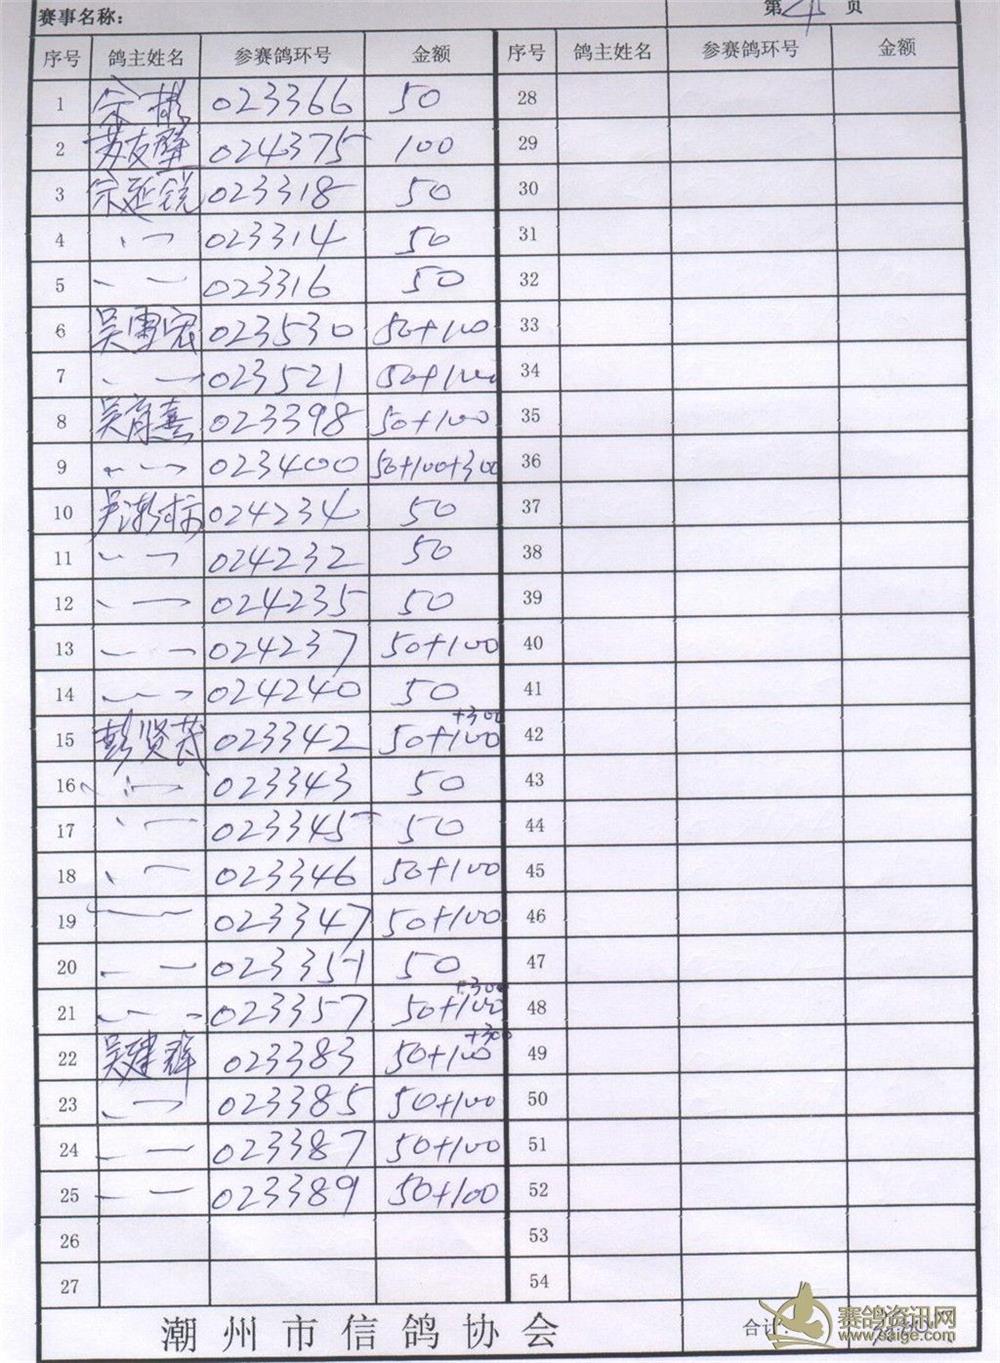 赛事名称： 第4页
序号 鸽主姓名 参赛鸽环号 金额 序号 鸽主姓名 参赛鸽环号 金额
1 余彬 023366 50 28
2 苏友壁 024375 100 29
3 余延锐 023318 50 30
4 〃 023314 50 31
5 〃 023316 50 32
6 吴 023530 50+100 33
7 〃 023521 50+100 34
8 吴育熹 023398 50+100 35
9 〃 023400 50+100+300 36
10 吴 024234 50 37
11 〃 024232 50 38
12 〃 024235 50 39
13 〃 024237 50+100 40
14 〃 024240 50 41
15 彭贤茂 023342 50+100+300 42
16 〃 023343 50 43
17 〃 023345 50 44
18 〃 023346 50+100 45
19 〃 023347 50+100 46
20 〃 023351 50 47
21 〃 023357 50+100+300 48
22 吴建群 023383 50+100+300 49
23 〃 023385 50+100 50
24 〃 023387 50+100 51
25 〃 023389 50+100 52
26 53
27 54
潮州市信鸽协会 合计：
赛鸽资讯网
www.saige.com